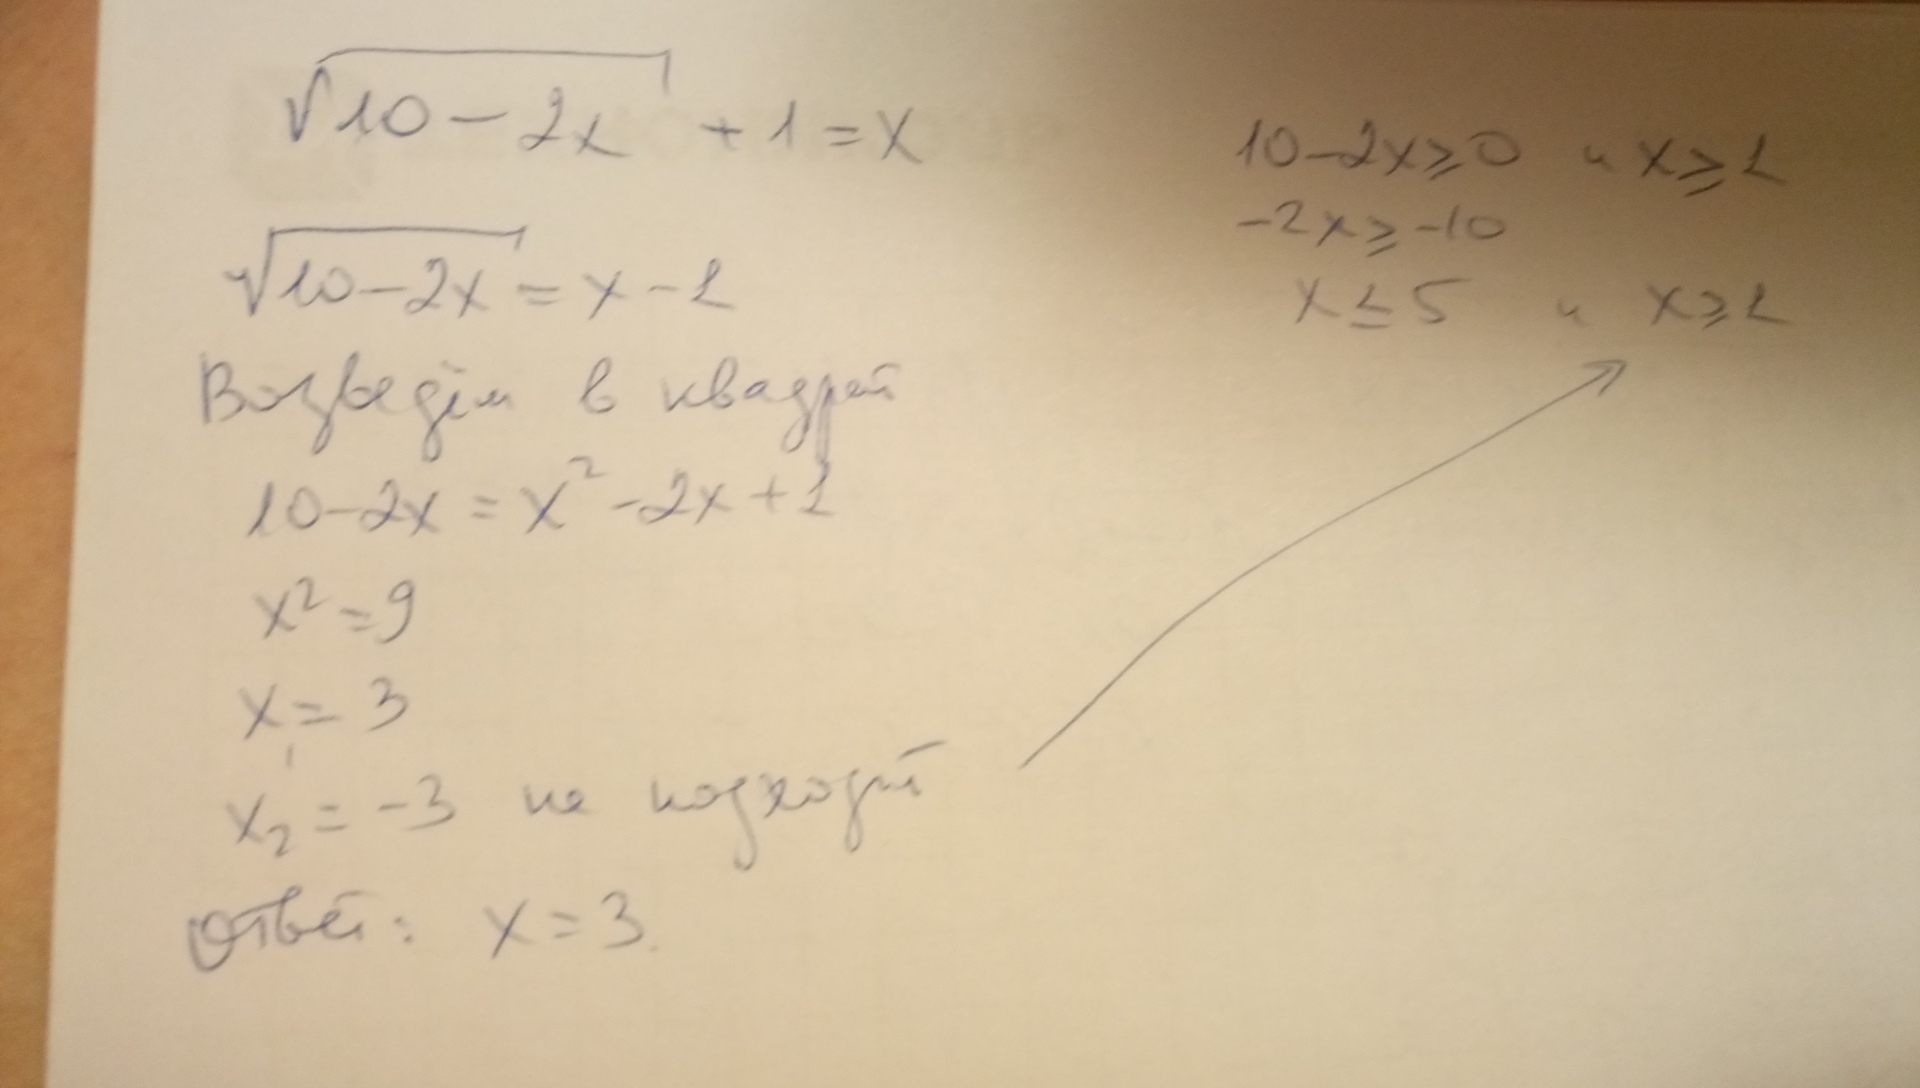 √10-2x + 1 = x
√10-2x = x-1
Возведём в квадрат
10-2x = x²-2x+1
x²=9
x₁=3
x₂=-3 не подходит
Ответ: x=3.
10-2x≥0 и x≥1
-2x≥-10
x≤5 и x≥1